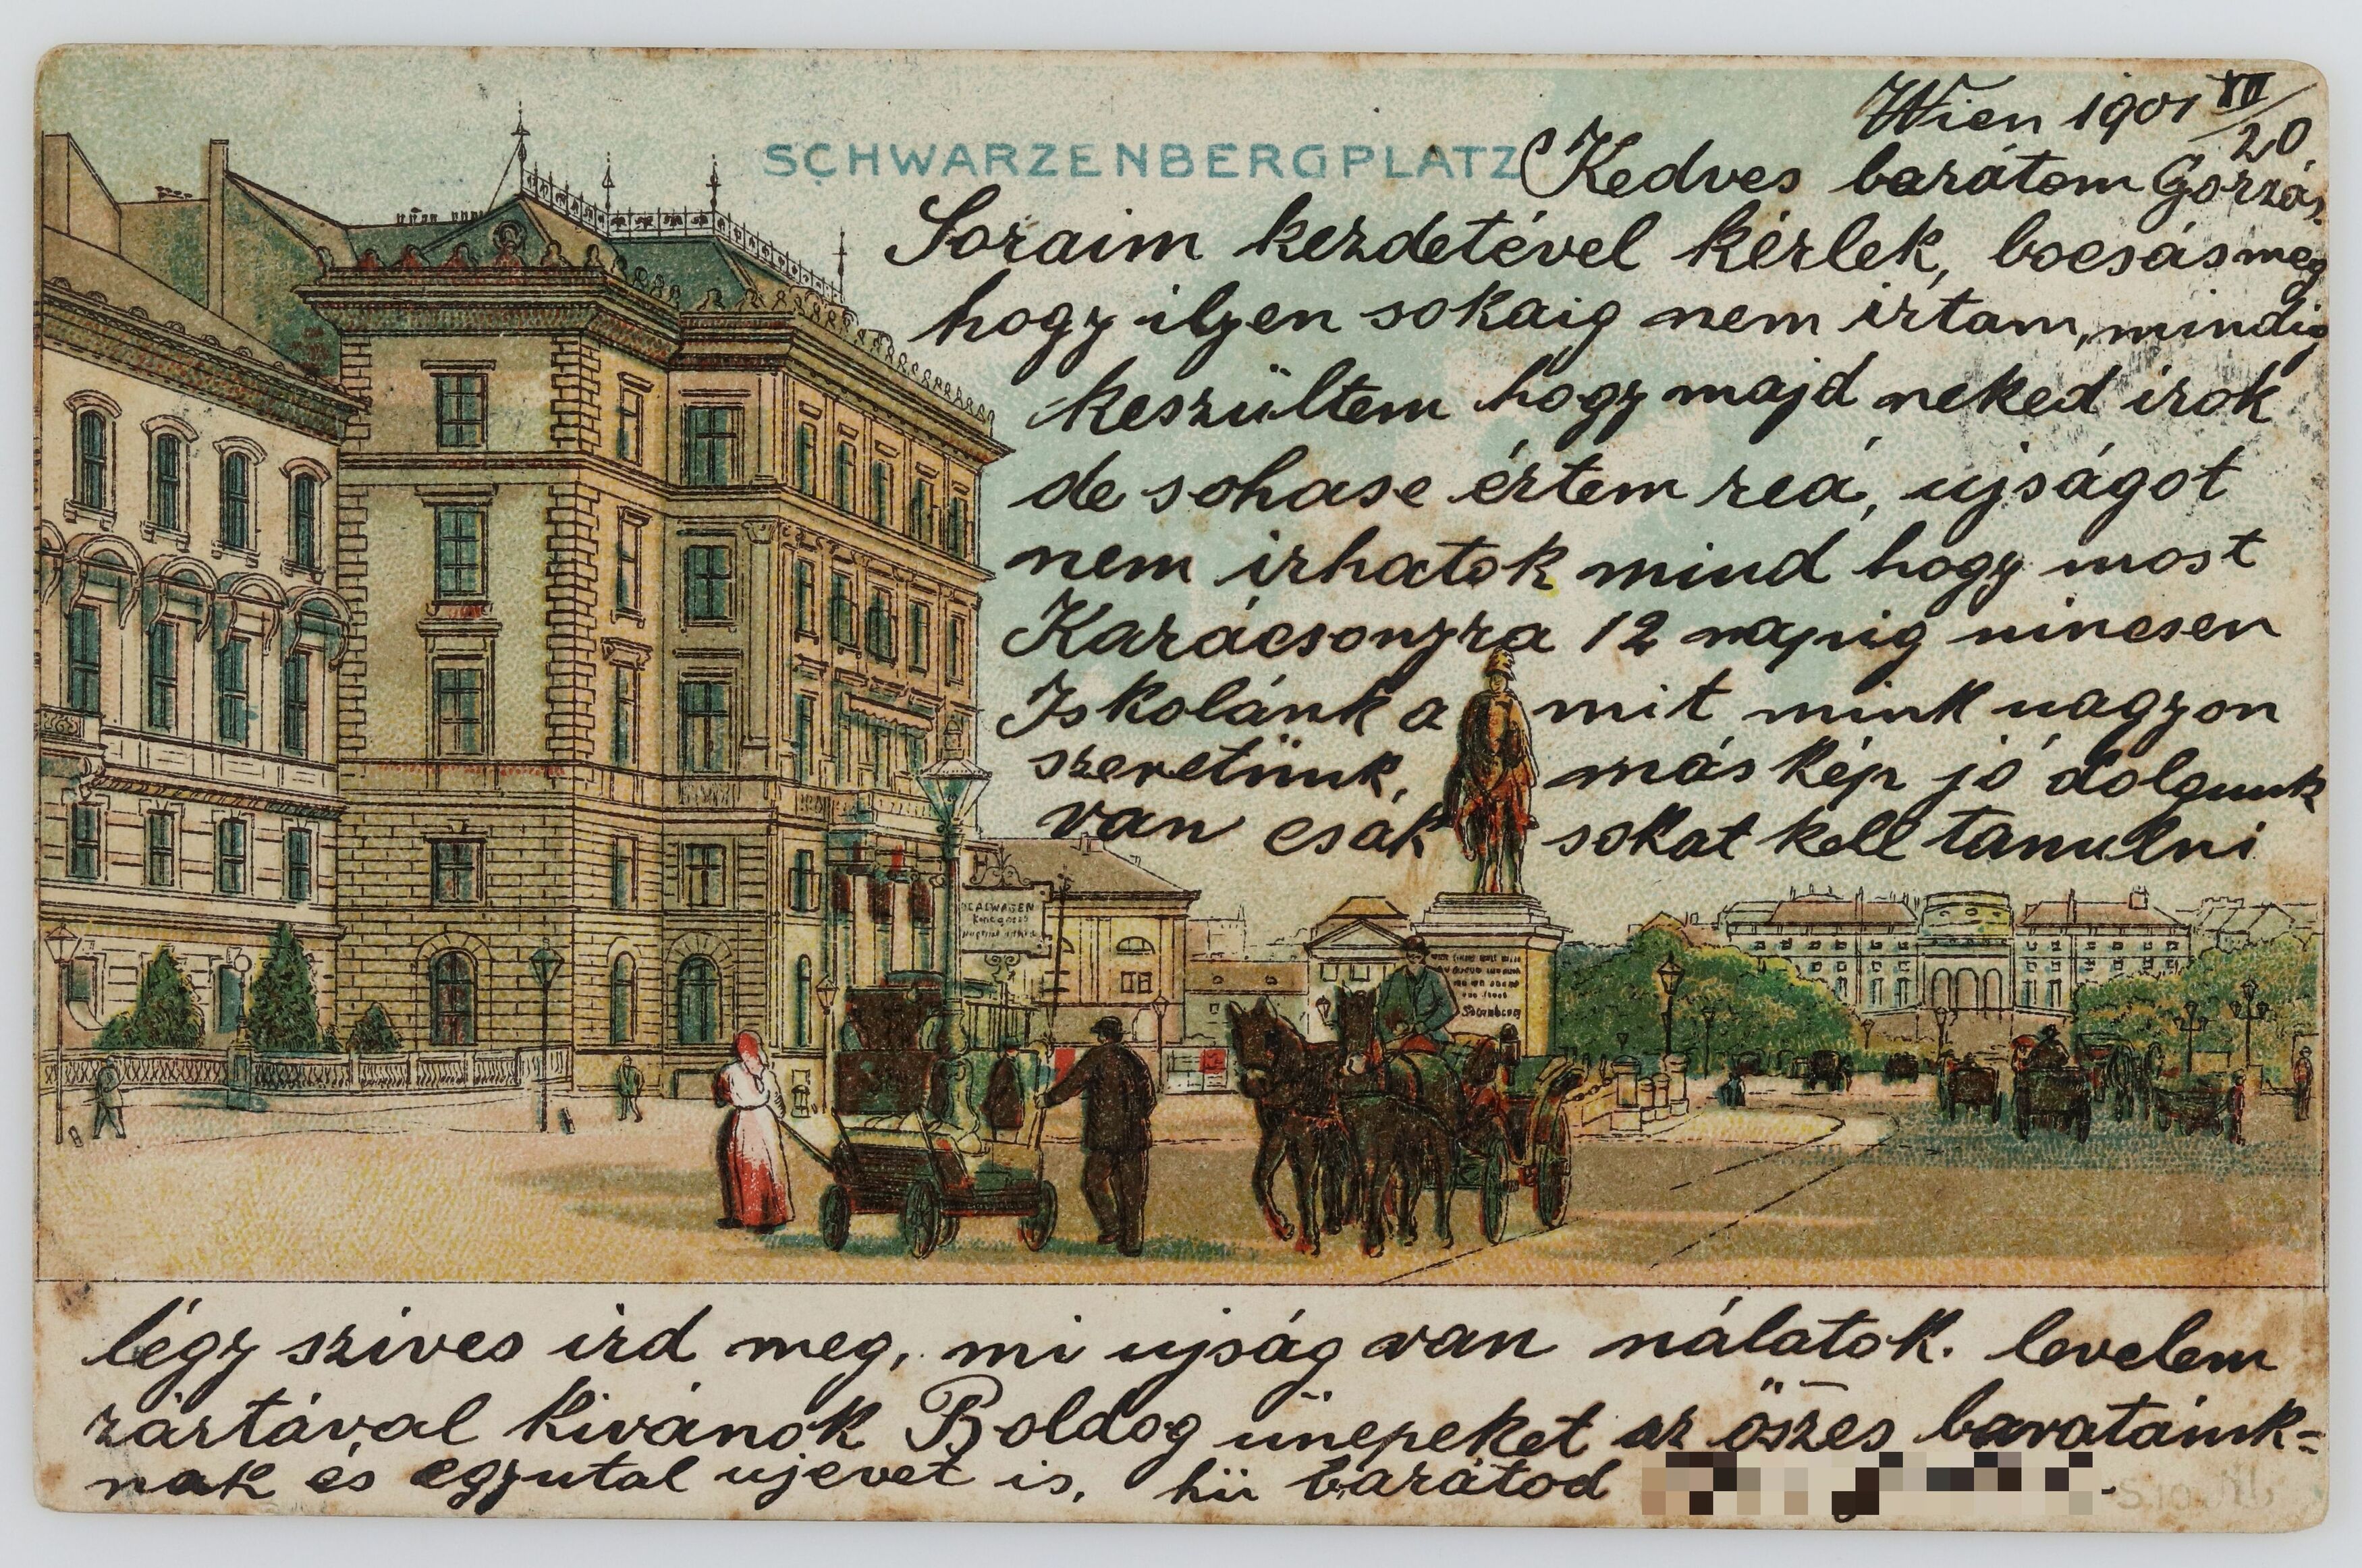 SCHWARZENBERGPLATZ
Wien 1901 XII/20
Kedves barátom Gorzás
Soraim kezdetével kérlek, bocsás meg
hogy ilyen sokaig nem irtam, mindig
keszültem hogy majd neked irok
de sohase értem reá, ujságot
nem irhatok mind hogy most
Karácsonyra 12 napig nincsen
Iskolánk a mit mink nagyon
szeretünk, más kép jó dolgunk
van csak sokat kell tanulni
légy szives ird meg, mi ujság van nálatok. levelem
zártával kivánok Boldog ünepeket az öszes baratáink=
nak és egyutal ujevet is, hü barátod